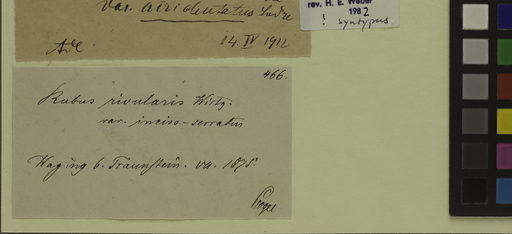 var. acidentatus Sudre
Ade 14. IV 1912
rev. H. E. Weber
1982
! syntypus
466.
Rubus rivularis Wirtg.
var. inciso-serratus
Waging b. Traunstein. va. 1875.
Progel